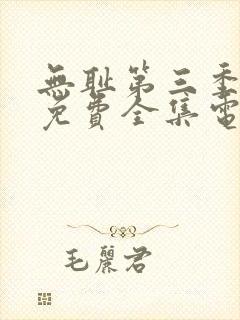 無耻第三季
免費全集電
毛麗君